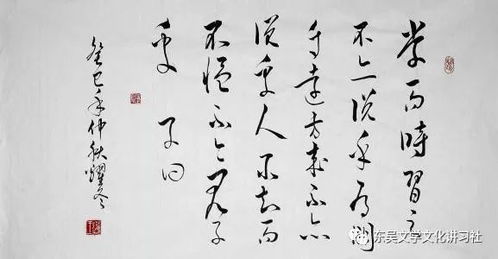 學而時習之
不亦説乎有朋
自遠方来不亦
説乎人不知而
不愠不亦君子
乎 子曰
癸巳年仲秋耀冬
东吴文学文化讲习社